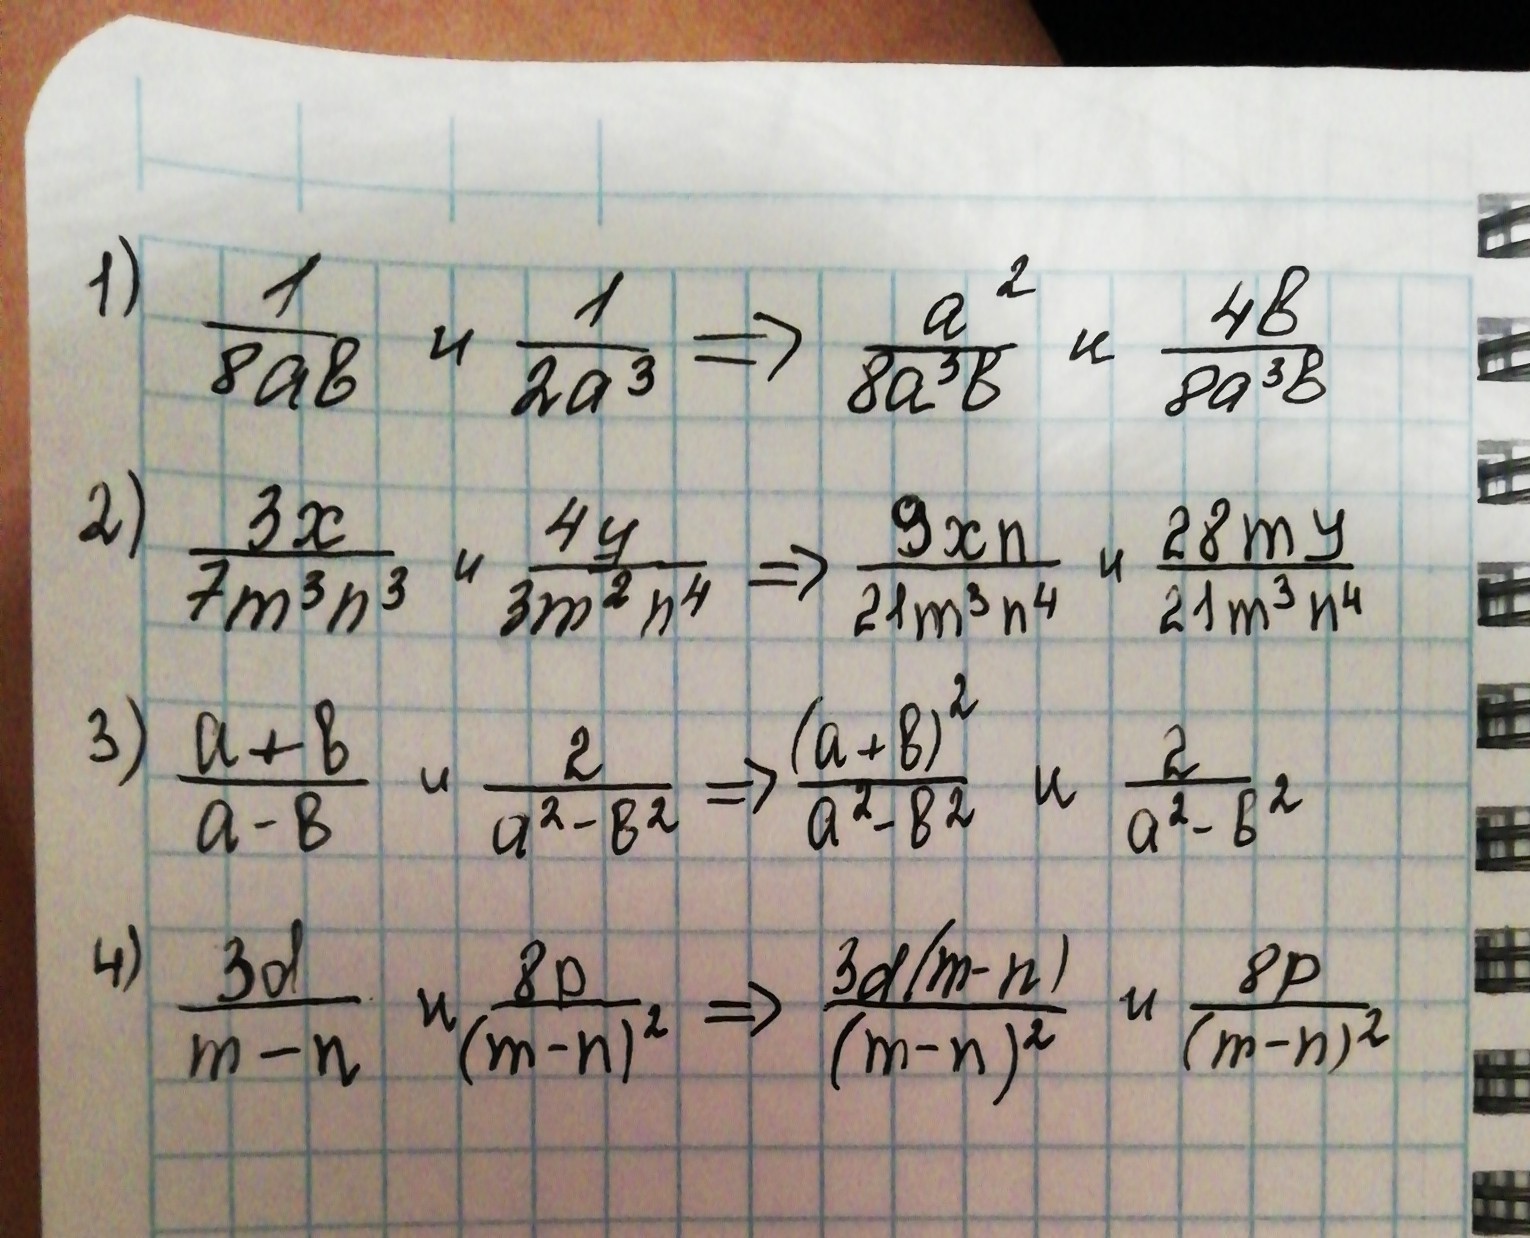 1) 1/(8ab) и 1/(2a³) => a²/(8a³b) и 4b/(8a³b)
2) 3x/(7m³n³) и 4y/(3m²n⁴) => 9xn/(21m³n⁴) и 28my/(21m³n⁴)
3) (a+b)/(a-b) и 2/(a²-b²) => (a+b)²/(a²-b²) и 2/(a²-b²)
4) 3d/(m-n) и 8p/(m-n)² => 3d(m-n)/(m-n)² и 8p/(m-n)²